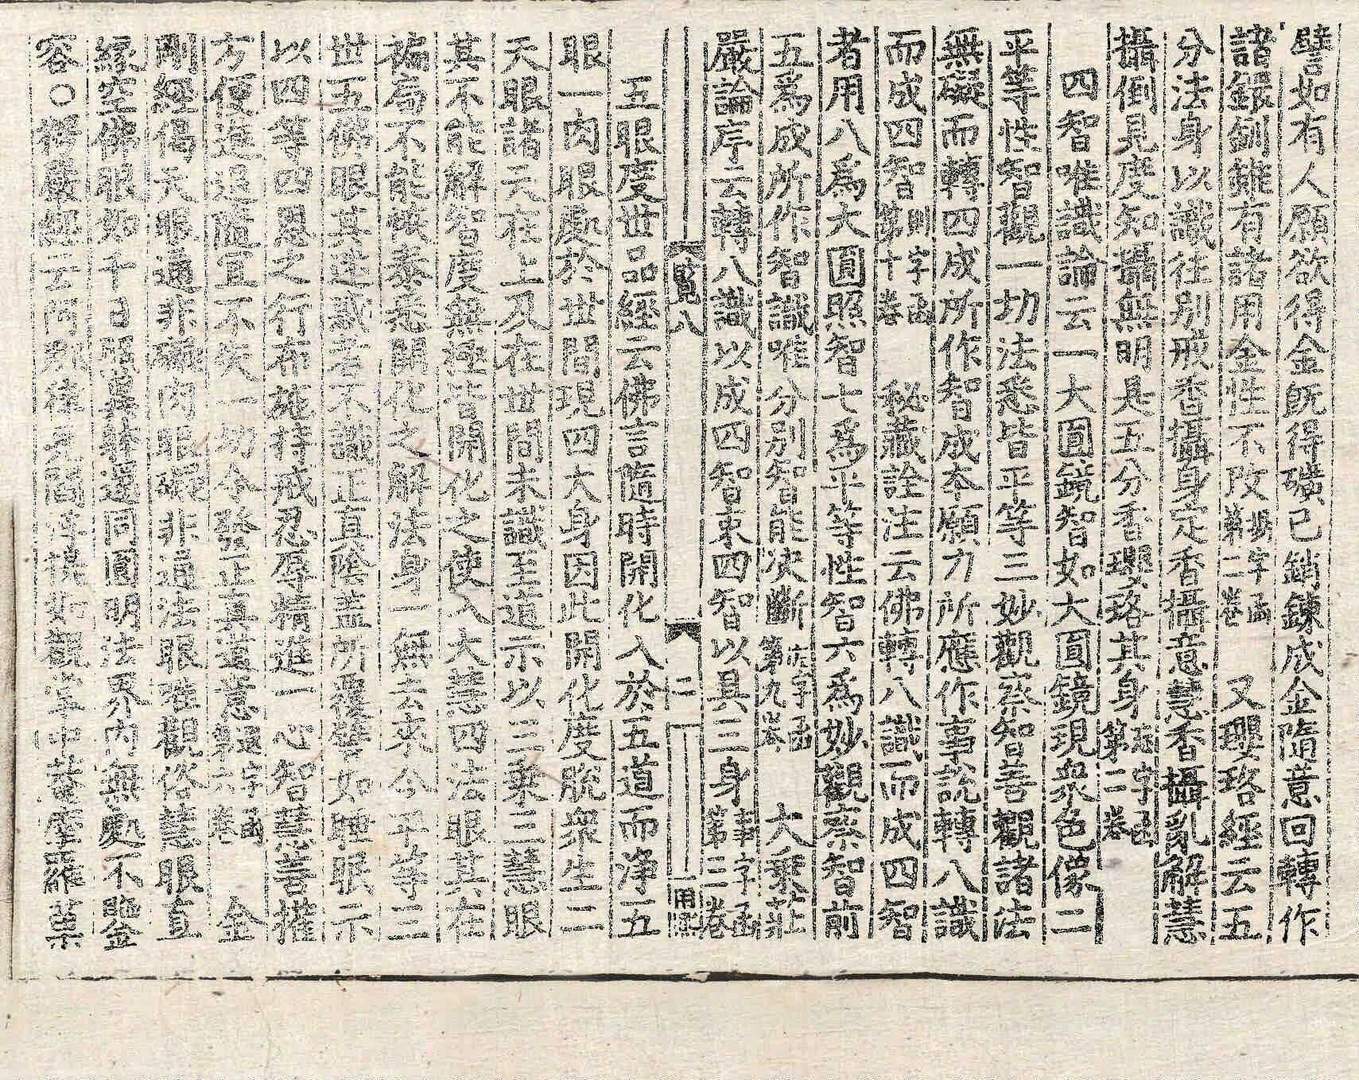 譬如有人願欲得金旣得礦已銷鍊成金隨意回轉作
諸鐶釧雖有諸用金性不改第二卷 又瓔珞經云五
分法身以識往別戒香攝身定香攝意慧香攝亂解慧
攝倒見度知攝無明是五分香瓔珞其身第二卷
四智唯識論云一大圓鏡智如大圓鏡現衆色像二
平等性智觀一切法悉皆平等三妙觀察智善觀諸法
無礙而轉四成所作智成本願力所應作事說轉八識
而成四智則字函第十卷 秘藏詮注云佛轉八識而成四智
者用八爲大圓照智七爲平等性智六爲妙觀察智前
五爲成所作智識唯分別智能决斷第九卷 大乘莊
嚴論序云轉八識以成四智束四智以具三身事字函第三卷
覧八 二
五眼度世品經云佛言隨時開化入於五道而淨五
眼一肉眼處於世間現四大身因此開化度脫衆生二
天眼諸天在上及在世間未識至道示以三乘三慧眼
其不能解智度無極皆開化之使入大慧四法眼其在
褊局不能恢泰悉開化之解法身一無去來今平等三
世五佛眼其迷惑者不識正真陰蓋所覆譬如睡眠示
以四等四恩之行布施持戒忍辱精進一心智慧善權
方便進退隨宜不失一切令發正真道意第六卷 金
剛經偈天眼通非礙肉眼礙非通法眼唯觀俗慧眼直
緣空佛眼如千日照異體還同圓明法界內無處不鑒
容○楞嚴經云阿那律見閻浮提如觀掌中菴摩羅菓